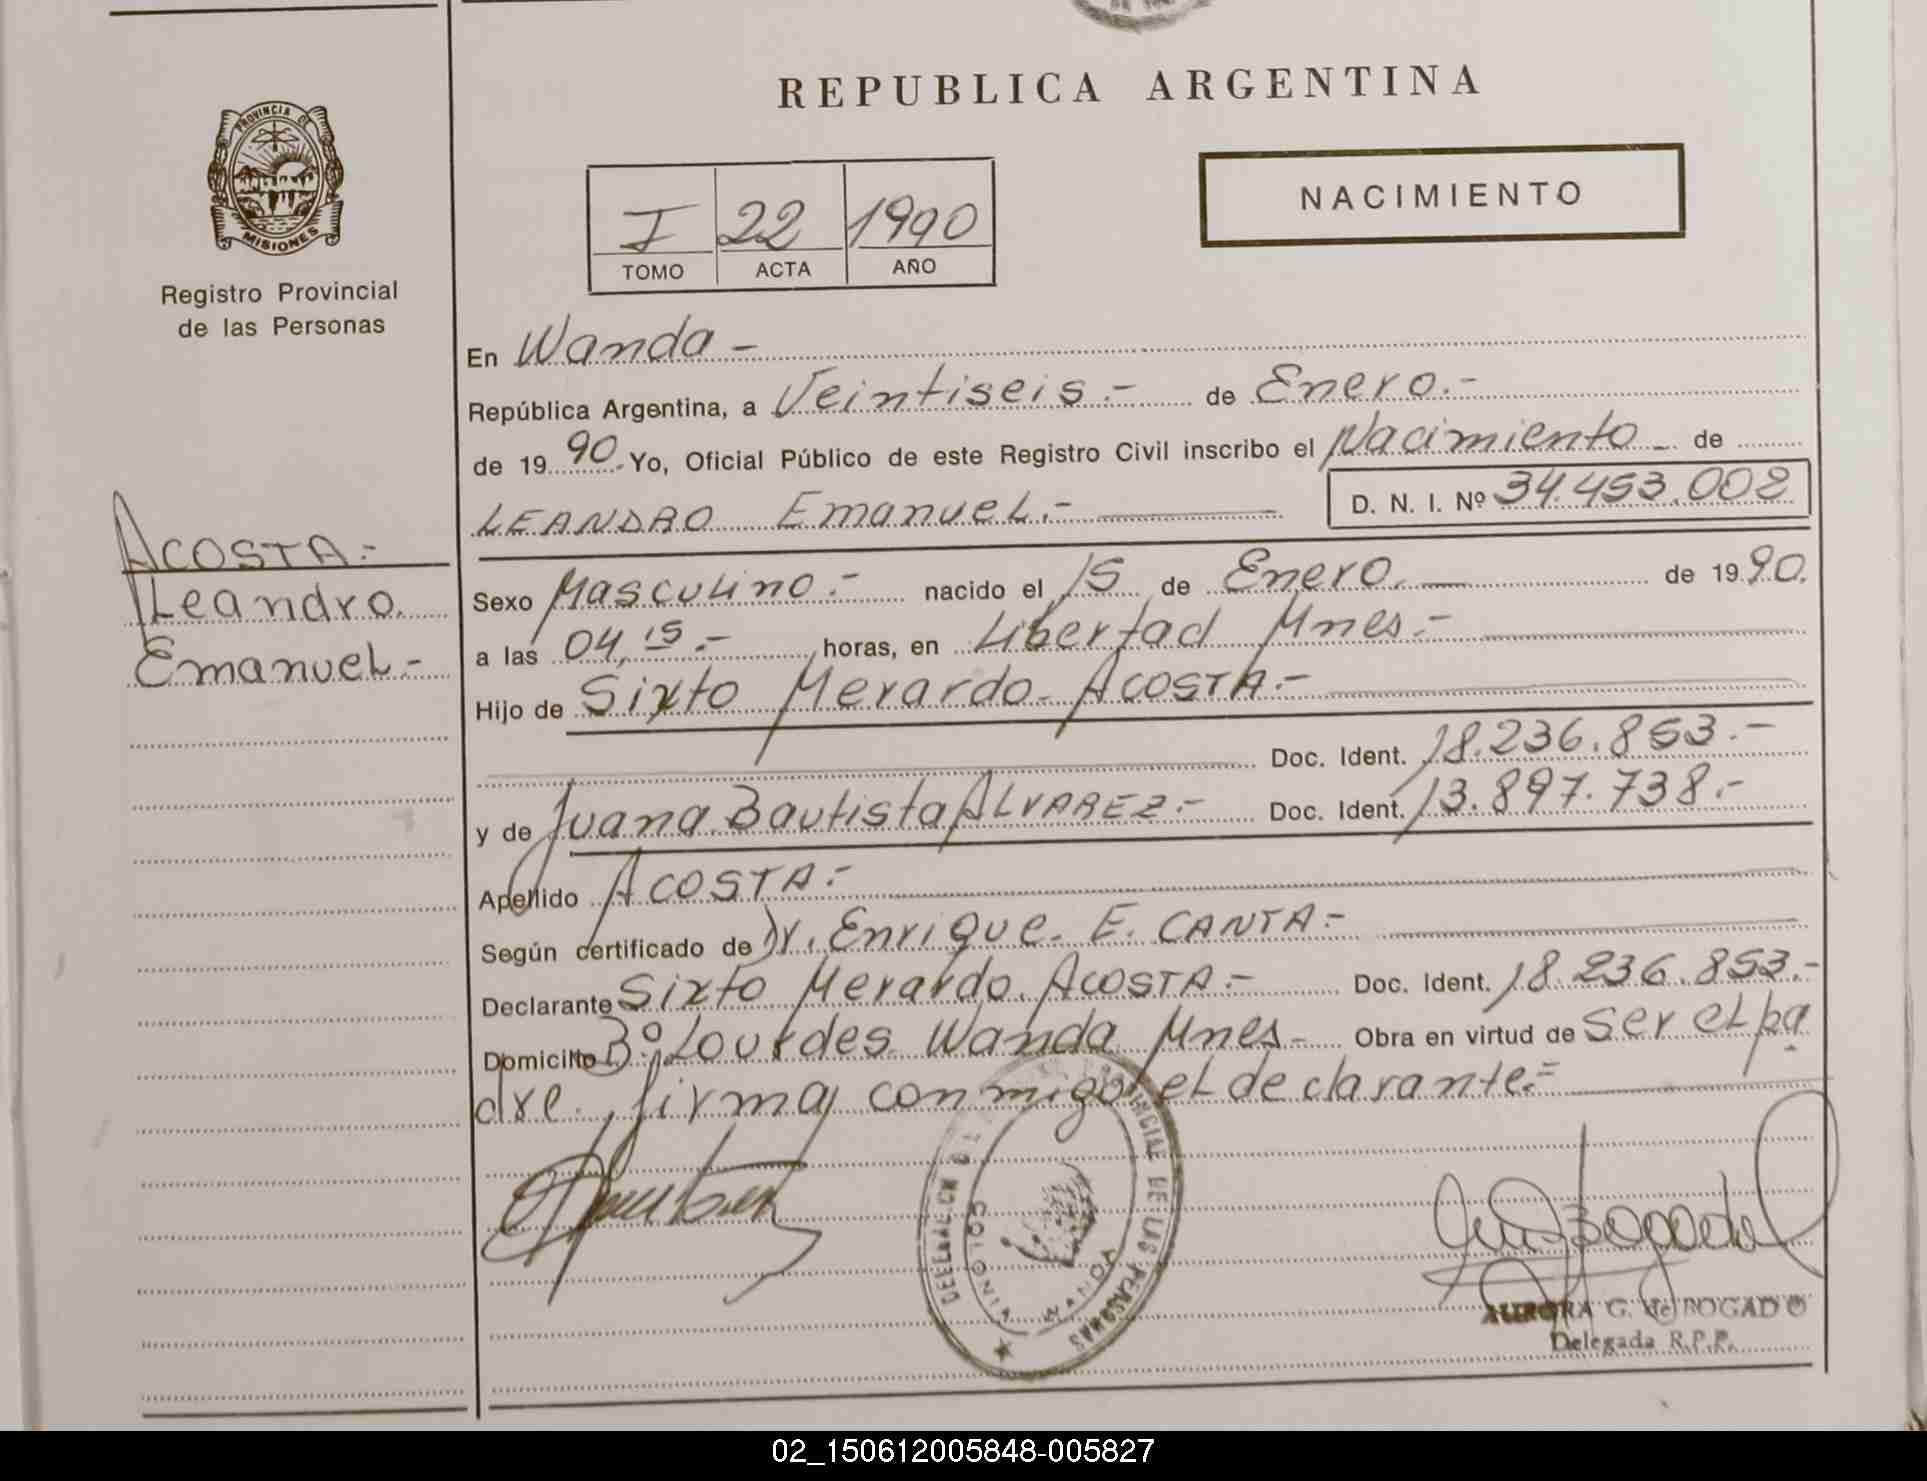 REPUBLICA ARGENTINA
PROVINCIA DE
MISIONES
Registro Provincial
de las Personas
I 22 1990
TOMO ACTA AÑO
NACIMIENTO
En Wanda -
República Argentina, a Veintiseis.- de Enero.-
de 19 90. Yo, Oficial Público de este Registro Civil inscribo el Nacimiento de
LEANDRO EmanueL.- D. N. I. Nº 34.453.002
ACOSTA.-
Leandro.
EmanueL.-
Sexo Masculino.- nacido el 15 de Enero. de 19 90.
a las 04,15.- horas, en Libertad Mnes.-
Hijo de Sixto Merardo ACOSTA.-
Doc. Ident. 18.236.853.-
y de Juana Bautista ALVAREZ.- Doc. Ident. 13.897.738.-
Apellido ACOSTA.-
Según certificado de Dr. Enrique. E. CANTA.-
Declarante Sixto Merardo ACOSTA.- Doc. Ident. 18.236.853.-
Domicilio Bº Lourdes Wanda Mnes.- Obra en virtud de ser el pa
dre., firma conmigo el declarante.=
PROVINCIAL DE LAS PERSONAS
WANDA
AURORA G. de BOGADO
Delegada R.P.P.
02_150612005848-005827